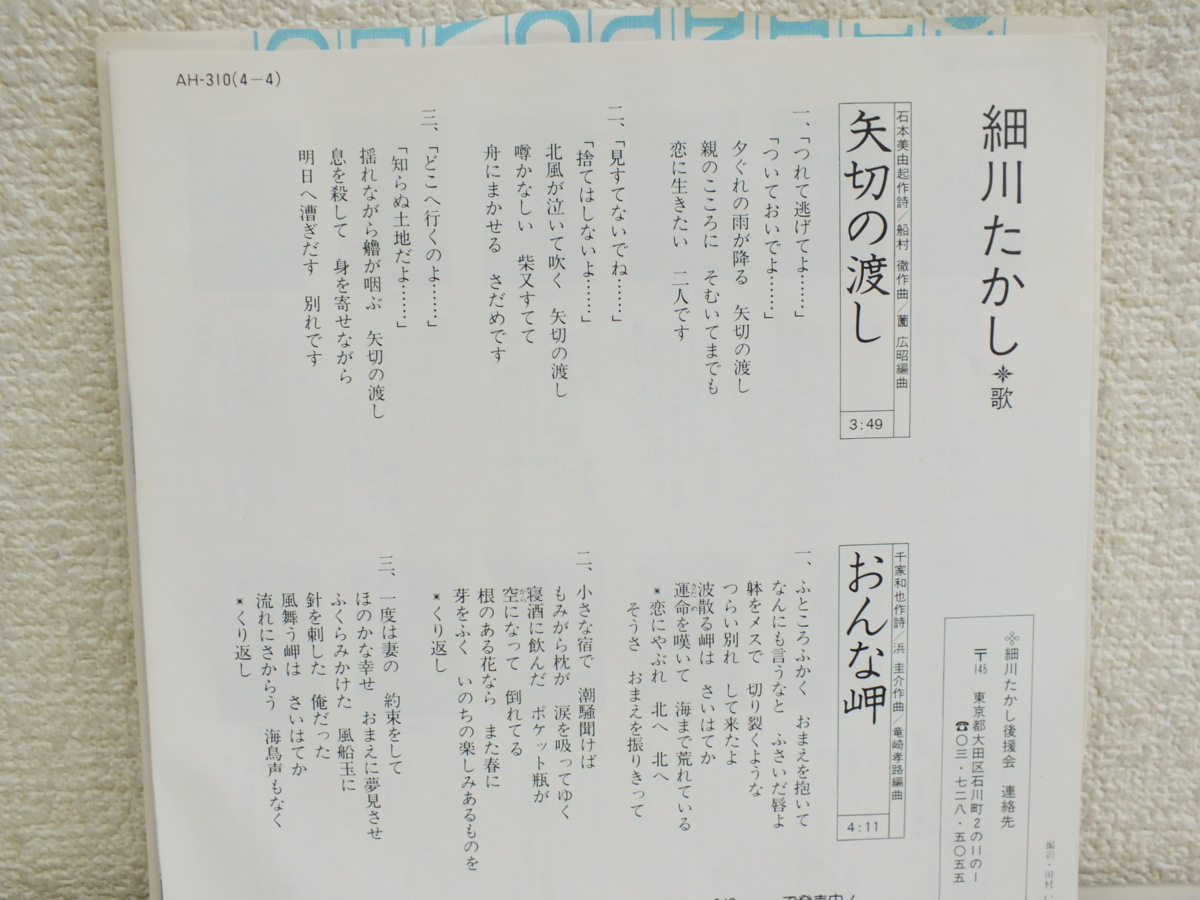 AH-310(4－4)
細川たかし＊歌
石本美由起作詩／船村 徹作曲／薗 広昭編曲
矢切の渡し
3:49
一、「つれて逃げてよ……」
「ついておいでよ……」
夕ぐれの雨が降る 矢切の渡し
親のこころに そむいてまでも
恋に生きたい 二人です
二、「見すてないでね……」
「捨てはしないよ……」
北風が泣いて吹く 矢切の渡し
噂かなしい 柴又すてて
舟にまかせる さだめです
三、「どこへ行くのよ……」
「知らぬ土地だよ……」
揺れながら艪が咽ぶ 矢切の渡し
息を殺して 身を寄せながら
明日へ漕ぎだす 別れです
千家和也作詩／浜 圭介作曲／竜崎孝路編曲
おんな岬
4:11
一、ふところふかく おまえを抱いて
なんにも言うなと ふさいだ唇よ
躰をメスで 切り裂くような
つらい別れ して来たよ
波散る岬は さいはてか
運命を嘆いて 海まで荒れている
＊恋にやぶれ 北へ 北へ
そうさ おまえを振りきって
二、小さな宿で 潮騒聞けば
もみがら枕が 涙を吸ってゆく
寝酒に飲んだ ポケット瓶が
空になって 倒れてる
根のある花なら また春に
芽をふく いのちの楽しみあるものを
＊くり返し
三、一度は妻の 約束をして
ほのかな幸せ おまえに夢見させ
ふくらみかけた 風船玉に
針を刺した 俺だった
風舞う岬は さいはてか
流れにさからう 海鳥声もなく
＊くり返し
※細川たかし後援会 連絡先
〒145 東京都大田区石川町2の11の1
☎〇3・七二八・五〇五五
撮影・田村